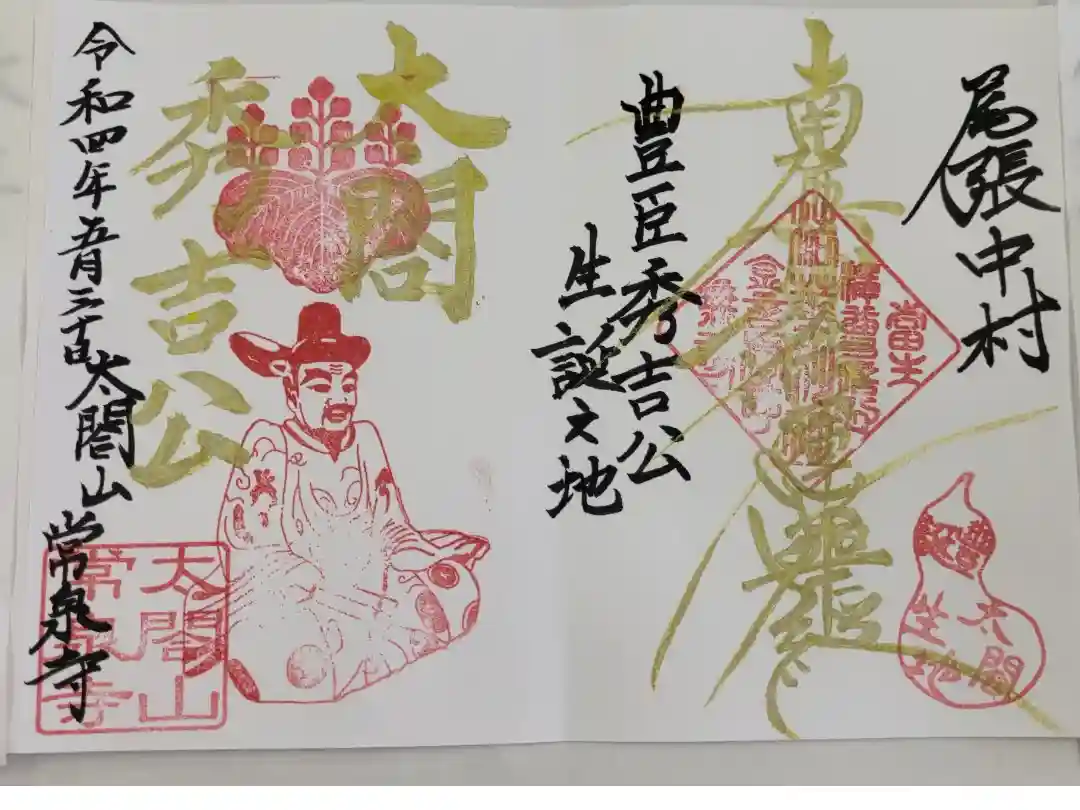 尾張中村
南無妙法蓮華経
當生
豊臣秀吉公
生誕之地
豊公
誕
太閤
生地
太閤
秀吉公
令和四年五月三十日
太閤山
常泉寺
太閤山
常泉寺